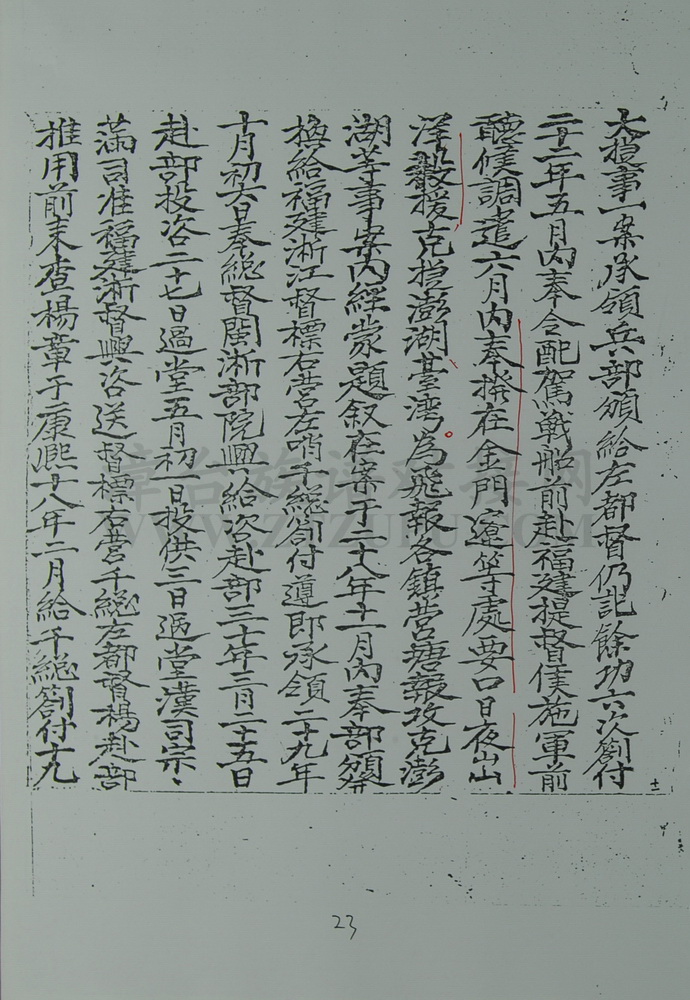 大捷事一案承領兵部頒給左都督仍記餘功六次劄付
二十二年五月內奉令配駕戰船前赴福建提督侯施軍前
聽候調遣六月內奉撥在金門寮等處要口日夜出
洋襲援克捷澎湖臺湾為飛報各鎮营塘報攻克澎
湖等事案內經蒙題敘在案于二十八年十一月內奉部頒
換給福建淅江督標右营左哨千總劄付遵即承領二十九年
十月初六日奉總督閩淅部院興給咨赴部三十年三月二十五日
赴部投咨二十七日過堂五月初一日投供三日過堂漢司宗、
滿司准福建淅督興咨送督標右营千總左都督楊赴部
推用前来查楊章于康熙十八年二月給千總劄付十九
十一
23
章台族谱对接网
WWW.ZTZUPU.COM